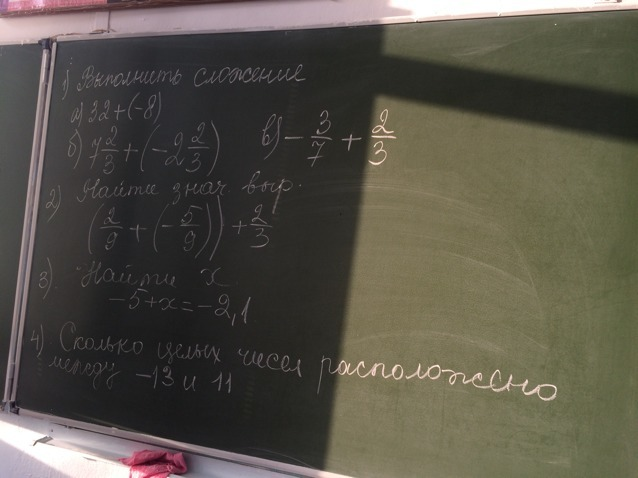 1) Выполнить сложение
а) 32 + (-8)
б) 7 2/3 + (-2 2/3) в) - 3/7 + 2/3
2) Найти знач. выр.
(2/9 + (-5/9)) + 2/3
3). Найти x
-5+x=-2,1
4). Сколько целых чисел расположено
между -13 и 11